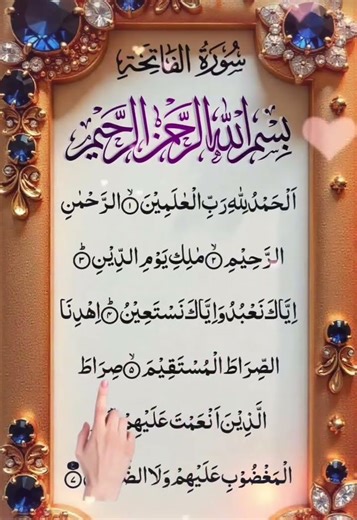 سُوْرَةُ الْفَاتِحَةِ
بِسْمِ اللّٰهِ الرَّحْمٰنِ الرَّحِيْمِ
اَلْحَمْدُ لِلّٰهِ رَبِّ الْعٰلَمِيْنَ ۙ﴿۱﴾ الرَّحْمٰنِ
الرَّحِيْمِ ۙ﴿۲﴾ مٰلِكِ يَوْمِ الدِّيْنِ ؕ﴿۳﴾
اِيَّاكَ نَعْبُدُ وَاِيَّاكَ نَسْتَعِيْنُ ؕ﴿۴﴾ اِهْدِنَا
الصِّرَاطَ الْمُسْتَقِيْمَ ۙ﴿۵﴾ صِرَاطَ
الَّذِيْنَ اَنْعَمْتَ عَلَيْهِمْ
الْمَغْضُوْبِ عَلَيْهِمْ وَلَا ﴿۷﴾